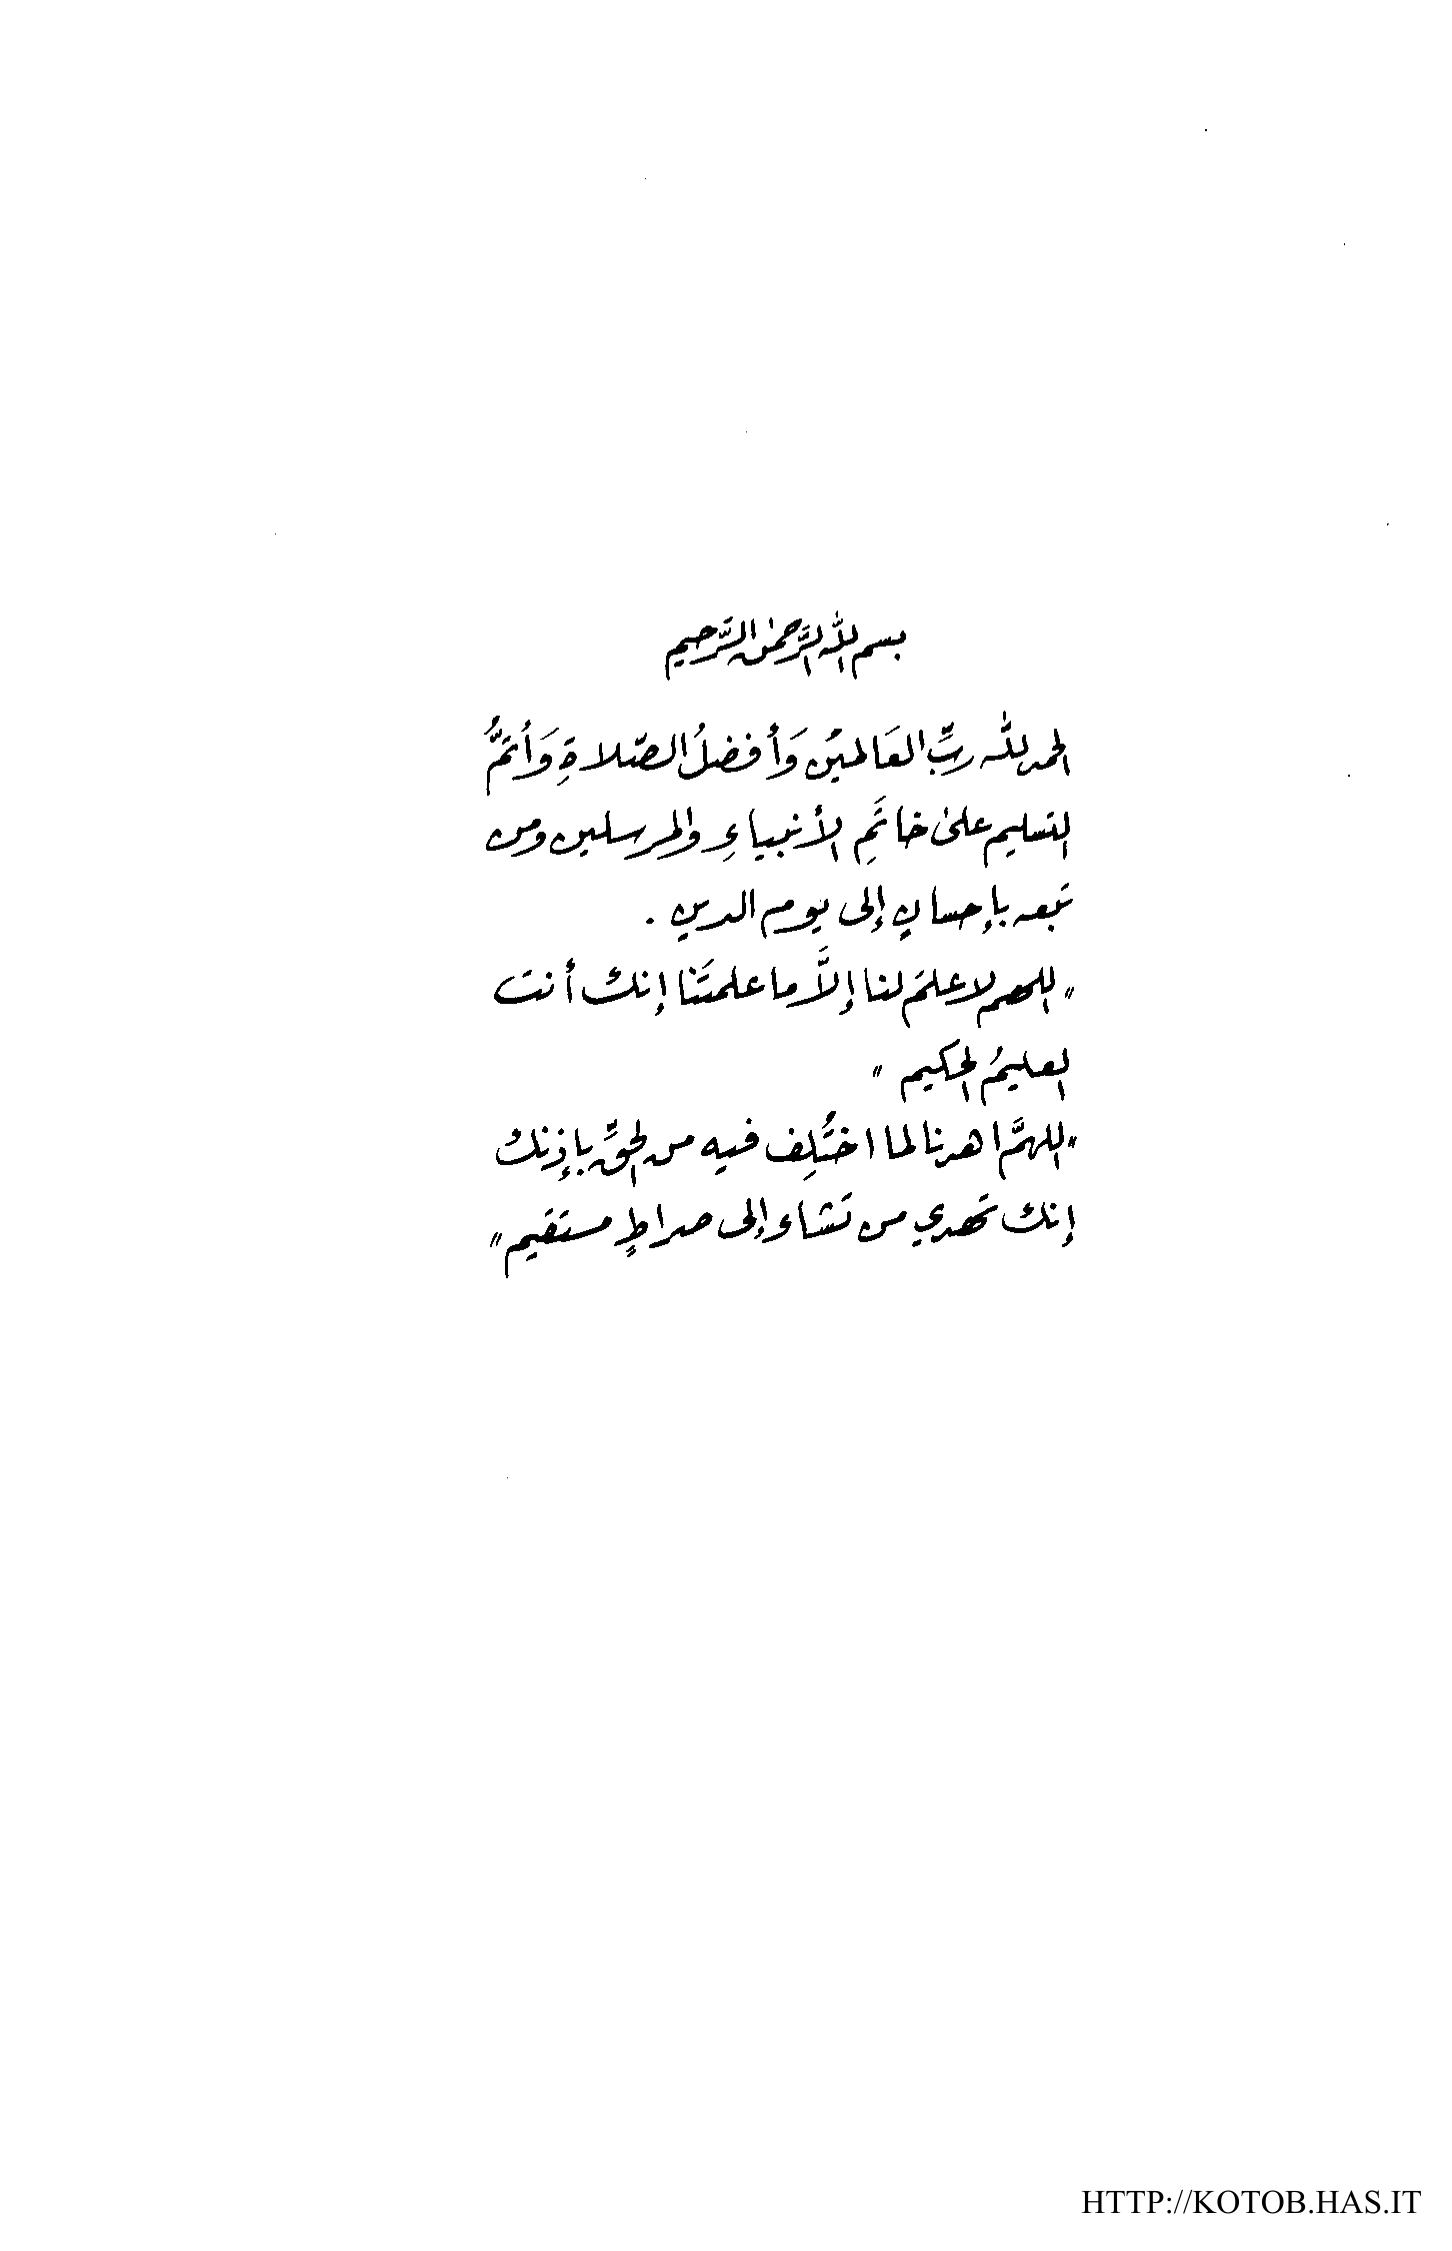 بسم الله الرَّحمٰن الرَّحيم
الحمد للّٰه ربِّ العَالمينْ وَأفضلُ الصّلاةِ وَأتمَُّ
التسليم علىٰ خاتَمِ الأنبياءِ والمرسلين ومن
تَبعه بإحسانٍ إلى يوم الدين .
"اللهم لا علمَ لنا إلاَّ ما علمتَنا إنك أنت
العليمُ الحكيم "
"اللهمَّ اهدنا لما اختُلِف فيه من الحقِّ بإذنك
إنك تهدي من تَشاء إلى صراطٍ مستقيم"
HTTP://KOTOB.HAS.IT